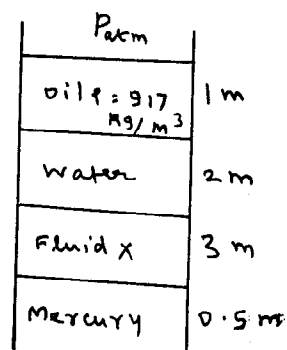 Patm
oil ρ = 917 1 m
kg/m³
Water 2 m
Fluid X 3 m
Mercury 0.5 m